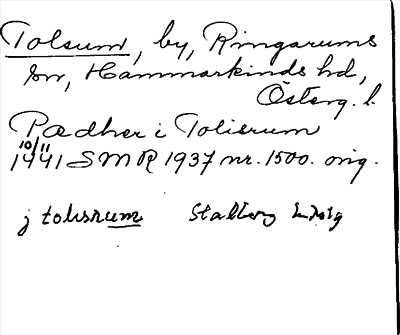 Tolsum, by, Ringarums
sn, Hammarkinds hd,
Österg. l.
Pædher i Tolisrum
10/11
1441 SMR 1937 nr. 1500. orig.
j tolisrum Stålberg